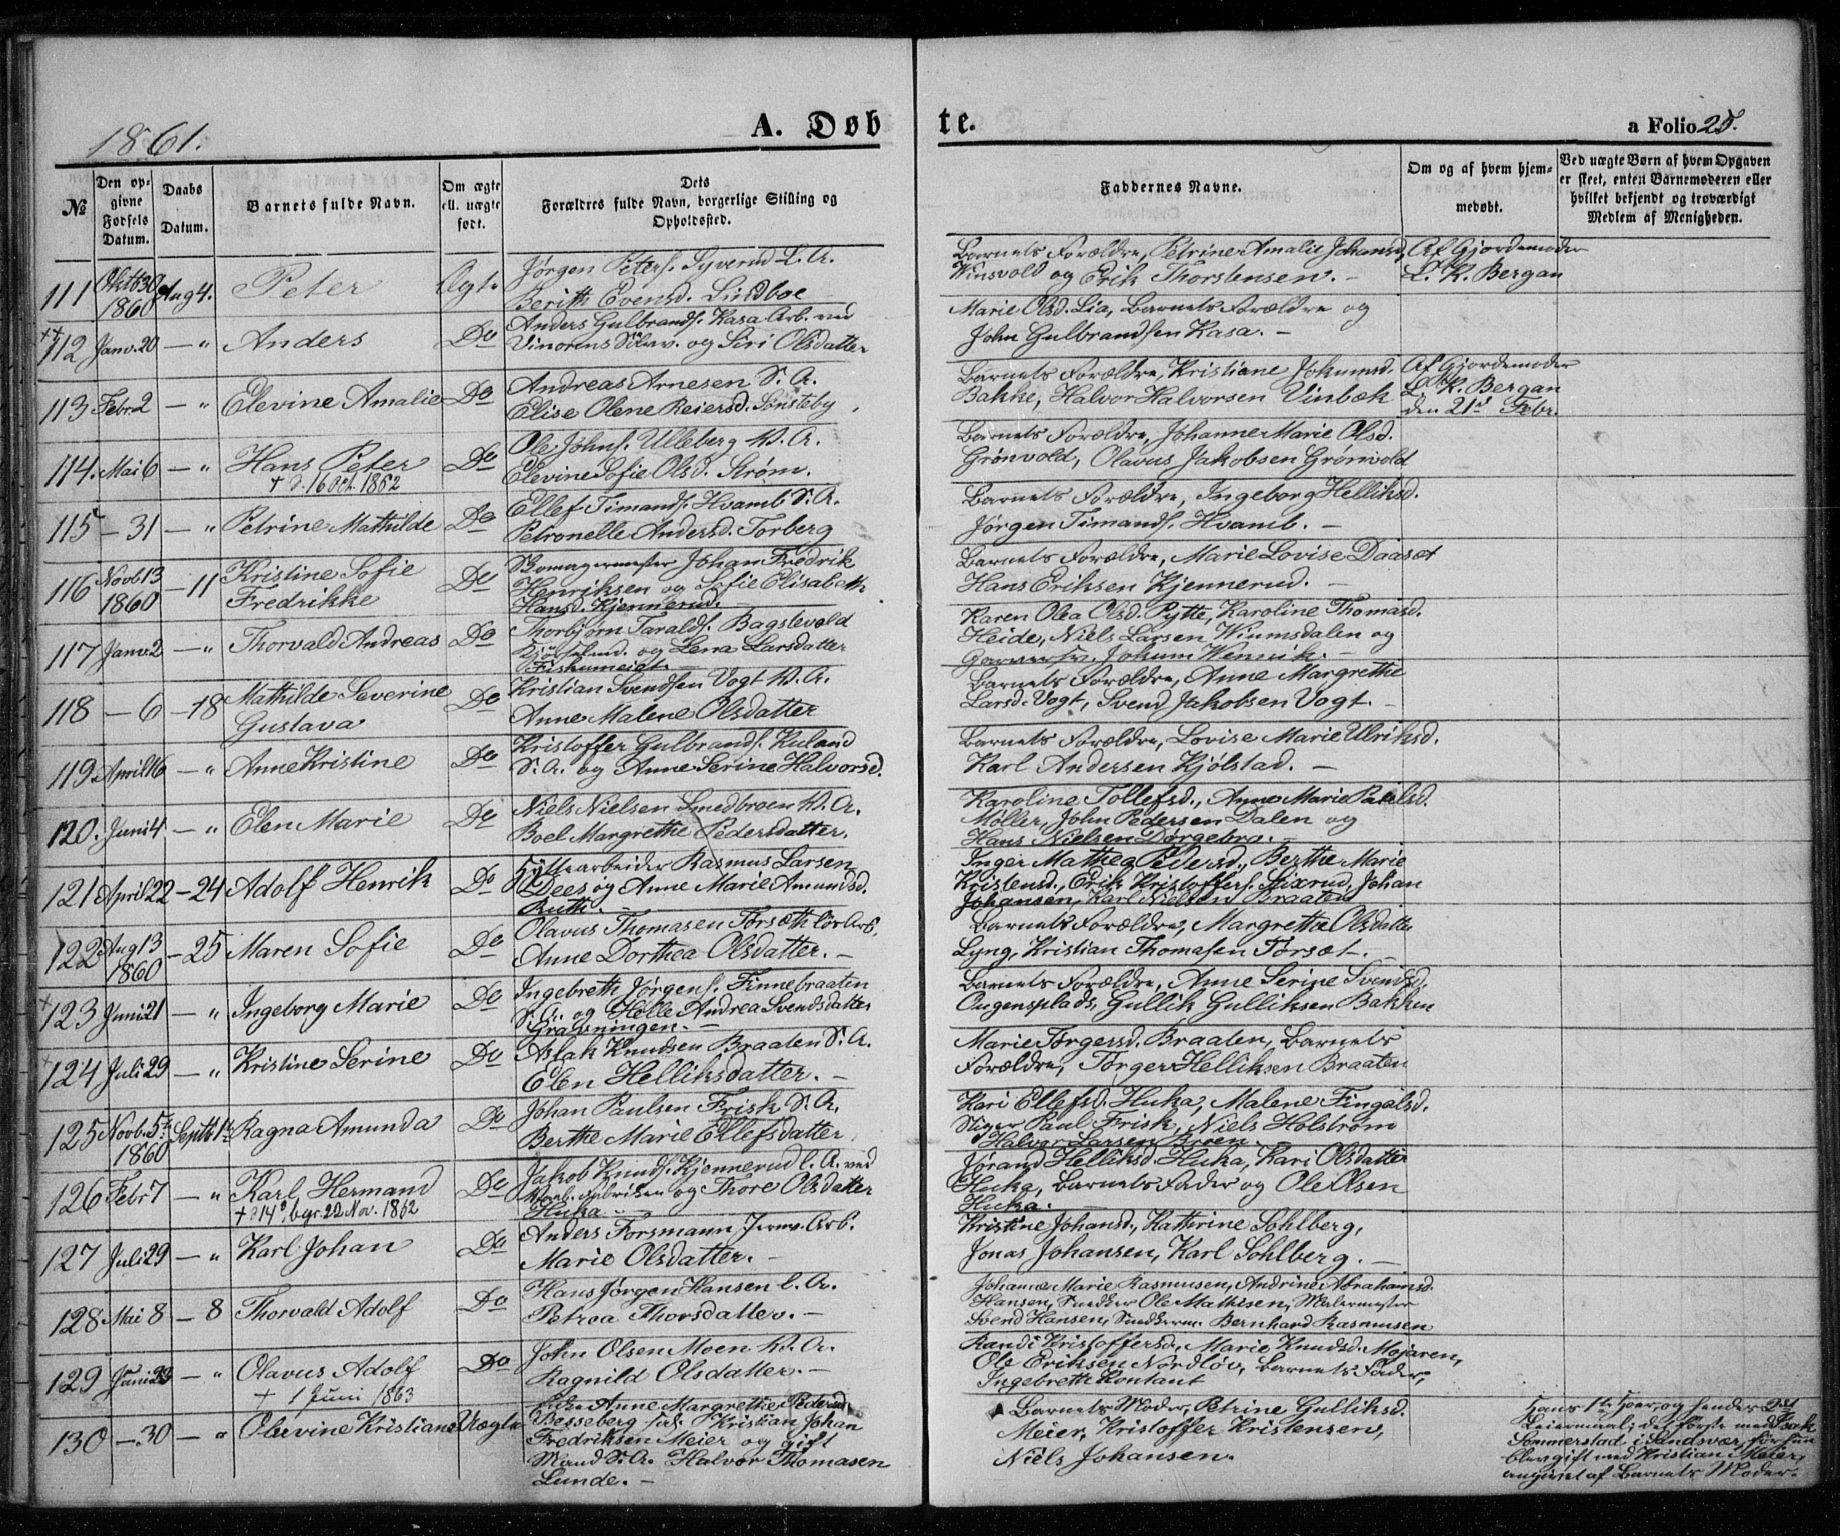 1861.
A. Døbte.
a Folio 25.
№
Den opgivne Fødsels Datum.
Daabs Datum.
Barnets fulde Navn.
Om ægte ell. uægte født.
Dets Forældres fulde Navn, borgerlige Stilling og Opholdssted.
Faddernes Navne.
Om og af hvem hjemmedøbt.
Ved uægte Børn af hvem Opgaven er skeet, enten Barnemoderen eller hvilket bekjendt og troværdigt Medlem af Menigheden.
111 Oktb 30 1860 Aug 4. Peter Ægte
Jørgen Peters. Syverud L. A.
Berith Evensd. Lindboe
Barnets Forældre, Petrine Amalie Johansd.
Winsvold og Erik Thorstensen. -
Af Gjordemoder
L. K. Bergan
112 Janv. 20 - " Anders Do
Anders Gulbrands. Kasa Arb. ved
Vinorens Sölvv. og Siri Olsdatter
Marie Olsd. Lia, Barnets Forældre og
John Gulbrandsen Kasa. -
113 Febr. 2 - " Elevine Amalie Do
Andreas Arnesen S. A.
Elise Olene Reiersd. Sønsteby
Barnets Forældre, Kristiane Johnsd.
Bakke, Halvor Halvorsen Vinbæk
Af Gjordemoder
L. K. Bergan
den 21d Febr.
114. Mai 6 - " Hans Peter Do
+ d. 16 Oct. 1862
Ole Johns. Ulleberg V. A.
Elevine Sofie Olsd. Strøm.
Barnets Forældre, Johanne Marie Olsd.
Grønvold, Olavus Jakobsen Grønvold
115 - 31 - " Petrine Mathilde Do
Ellef Timands. Hvamb S. A.
Petronelle Andersd. Torberg
Barnets Forældre, Ingeborg Helliksd.
Jørgen Timands. Hvamb. -
116 Novb 13 1860 - 11 Kristine Sofie
Fredrikke Do
Skomagermester Johan Fredrik
Henriksen og Sofie Elisabeth
Hansd. Kjennerud.
Barnets Forældre, Marie Lovise Daaset
Hans Eriksen Kjennerud. -
117 Janv. 2 - " Thorvald Andreas Do
Thorbjørn Taralds. Bagslevold
og Lena Larsdatter
Fiskumeidt. -
Karen Olea Olsd. Pytte, Karoline Thomasd.
Heide, Niels Larsen Wiumsdalen og
Johum Wennik. -
118 - 6 - 18 Mathilde Severine
Gustava Do
Kristian Svendsen Vogt V. A.
Anne Malene Olsdatter
Barnets Forældre, Anne Margrethe
Larsd. Vogt, Svend Jakobsen Vogt. -
119 April 16 - " Anne Kristine Do
Kristoffer Gulbrands. Ruland
S. A. og Anne Serine Halvorsd.
Barnets Forældre, Lovise Marie Ulriksd.
Karl Andersen Kjølstad. -
120. Juni 4 - " Elen Marie Do
Niels Nielsen Smedbroen V. A.
Boel Margrethe Pedersdatter.
Karoline Tollefsd., Anne Marie Paulsd.
Møller, John Pedersen Dalen og
Hans Nielsen Dørgebro. -
121 April 22 - 24 Adolf Henrik Do
Hyttearbeider Rasmus Larsen
Dees og Anne Marie Amundsd.
Ruth. -
Inger Mathea Pedersd., Berthe Marie
Kristensd., Erik Kristoffers. Stixrud, Johan
Johansen, Karl Nielsen Braaten
122 Aug 13 1860 - 25 Maren Sofie Do
Olavus Thomasen Torsæth løs Arb.
Anne Dorthea Olsdatter. -
Barnets Forældre, Margrethe Olsdatter
Lyng, Kristian Thomasen Torsæt. -
123 Juni 21 - " Ingeborg Marie Do
Ingebreth Jørgens. Finnebraaten
S. A. og Helle Andrea Svendsdatter
Gravningen. -
Barnets Forældre, Anne Serine Svendsd.
Augensplads, Gullik Gulliksen Bakken
124 Juli 29 - " Kristine Serine Do
Aslak Knudsen Braaten S. A.
Elen Helliksdatter. -
Marie Torgersd. Braaten, Barnets
Forældre, Torger Helliksen Braaten
125 Novb. 5te 1860 Septb 1ste Ragna Amunda Do
Johan Paulsen Frisk S. A.
Berthe Marie Ellefsdatter
Kari Ellefsd. Huka, Malene Fingalsd.
Stiger Paul Frisk, Niels Holstrøm
Halvor Larsen Broen. -
126 Febr 7 - " Karl Hermand Do
+ 14d, bgr. 22 Nov. 1862
Jakob Knuds. Kjennerud L. A. ved
og Thore Olsdatter
Huka -
Jørand Helliksd. Huka, Kari Olsdatter
Huka, Barnets Fader og Ole Olsen
Huka. -
127 Juli 29 - " Karl Johan Do
Anders Forsmann Jernv. Arb.
Marie Olsdatter. -
Kristine Johansd., Kathrine Sohlberg,
Jonas Johansen, Karl Sohlberg. -
128 Mai 8 - 8 Thorvald Adolf Do
Hans Jørgen Hansen L. A.
Petrea Thorsdatter. -
Johanne Marie Rasmusen, Andrine Abrahamsd.
Hansen, Snedker Ole Mathisen, Malermester
Svend Hansen, Snedkerm. Bernhard Rasmusen
129 Juni 23 - " Olavus Adolf Do
+ 1 Juni 1863
John Olsen Moen V. A.
Ragnild Olsdatter. -
Randi Kristoffersd., Marie Knudsd. Mojaren,
Ole Eriksen Nordløv, Barnets Fader,
Ingebreth Kontant
130 - 30 - " Olevine Kristiane Uægte
Anne Margrethe Pedersd.
Besseberg Kristian Johan
Fredriksen Meier og gift
Mand S. A. Halvor Thomasen
Lunde. -
Barnets Moder, Petrine Gulliksd.
Meier, Kristoffer Kristensen,
Niels Johansen.
Hans 1te Hoer, og hendes 2det
Leiermaal; det første med Isak
Sommerstad i Sandsvær, før hun
blev gift med Kristian Meier,
angivet af Barnets Moder. -